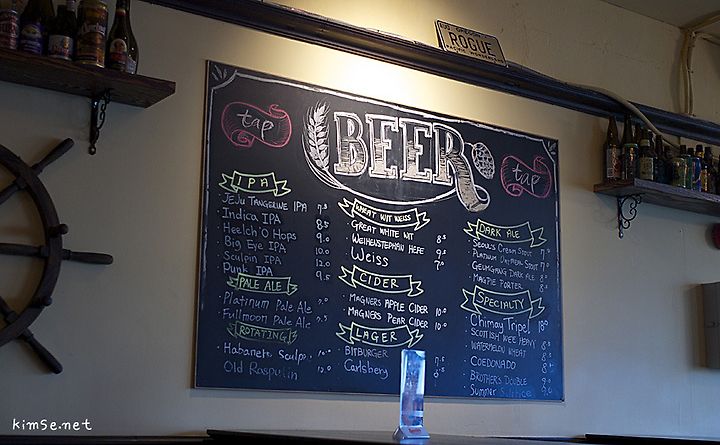 ROGUE
tap
BEER
tap
IPA
JEJU TANGERINE IPA 7.5
Indica IPA 8.5
Heelch'O Hops 9.0
Big Eye IPA 10.0
Sculpin IPA 12.0
Punk IPA 9.5
PALE ALE
Platinum Pale Ale 7.0
Fullmoon Pale Ale 7.5
ROTATING
Habanero Sculp. 10.
Old Rasputin 12.
WHEAT WIT WEISS
GREAT WHITE WIT 8.5
WEIHENSTEPHAN HEFE 9.
Weiss 7.0
CIDER
MAGNERS APPLE CIDER 10.0
MAGNERS PEAR CIDER 10.0
LAGER
BITBURGER
Carlsberg
DARK ALE
SEOUL'S CREAM STOUT 7.
PLATINUM OATMEAL STOUT 7.
GEUMGANG DARK ALE 8.
MAGPIE PORTER 8.
SPECIALTY
Chimay Tripel 18.0
SCOTTISH WEE HEAVY 8.
WATERMELON WHEAT 8.
COEDONADO 8.
BROTHER'S DOUBLE 9.
Summer
kimSe.net